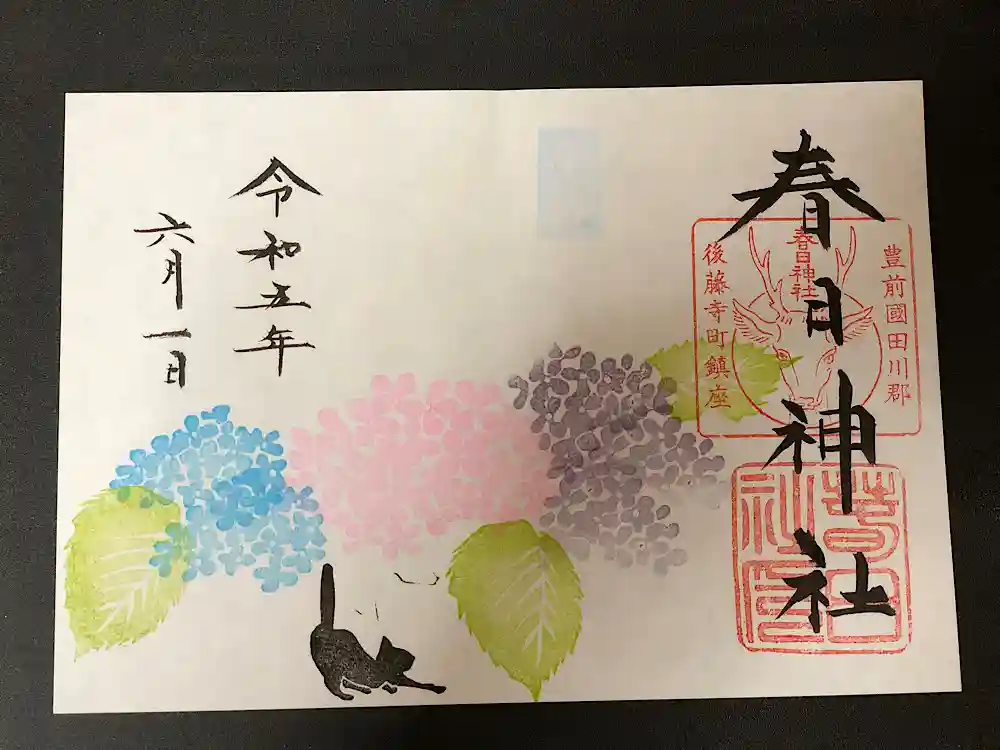 春日神社
豊前國田川郡
春日神社
後藤寺町鎮座
令和五年
六月一日